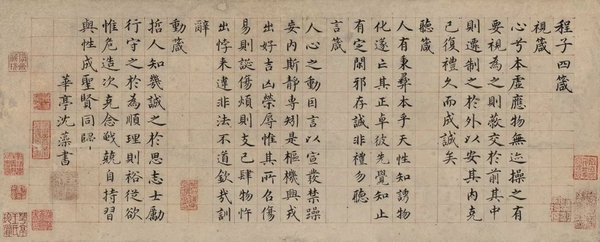 程子四箴
視箴
心兮本虛應物無迹操之有
要視為之則蔽交於前其中
則遷制之於外以安其內克
己復禮久而成誠矣
聽箴
人有秉彝本乎天性知誘物
化遂亡其正卓彼先覺知止
有定閑邪存誠非禮勿聽
言箴
人心之動因言以宣發禁躁
妄內斯靜專矧是樞機興戎
出好吉凶榮辱惟其所召傷
易則誕傷煩則支己肆物忤
出悖來違非法不道欽哉訓
辭
動箴
哲人知幾誠之於思志士勵
行守之於為順理則裕從欲
惟危造次克念戰兢自持習
與性成聖賢同歸
華亭沈藻書